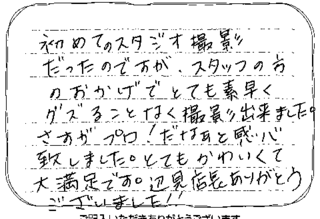 初めてのスタジオ撮影
だったのですが、スタッフの方
のおかげでとても素早く
グズることなく撮影出来ました。
さすがプロ!だなぁと感心
致しました。とてもかわいくて
大満足です。辺見店長ありがとう
ございました!!
ご記入いただきありがとうございます